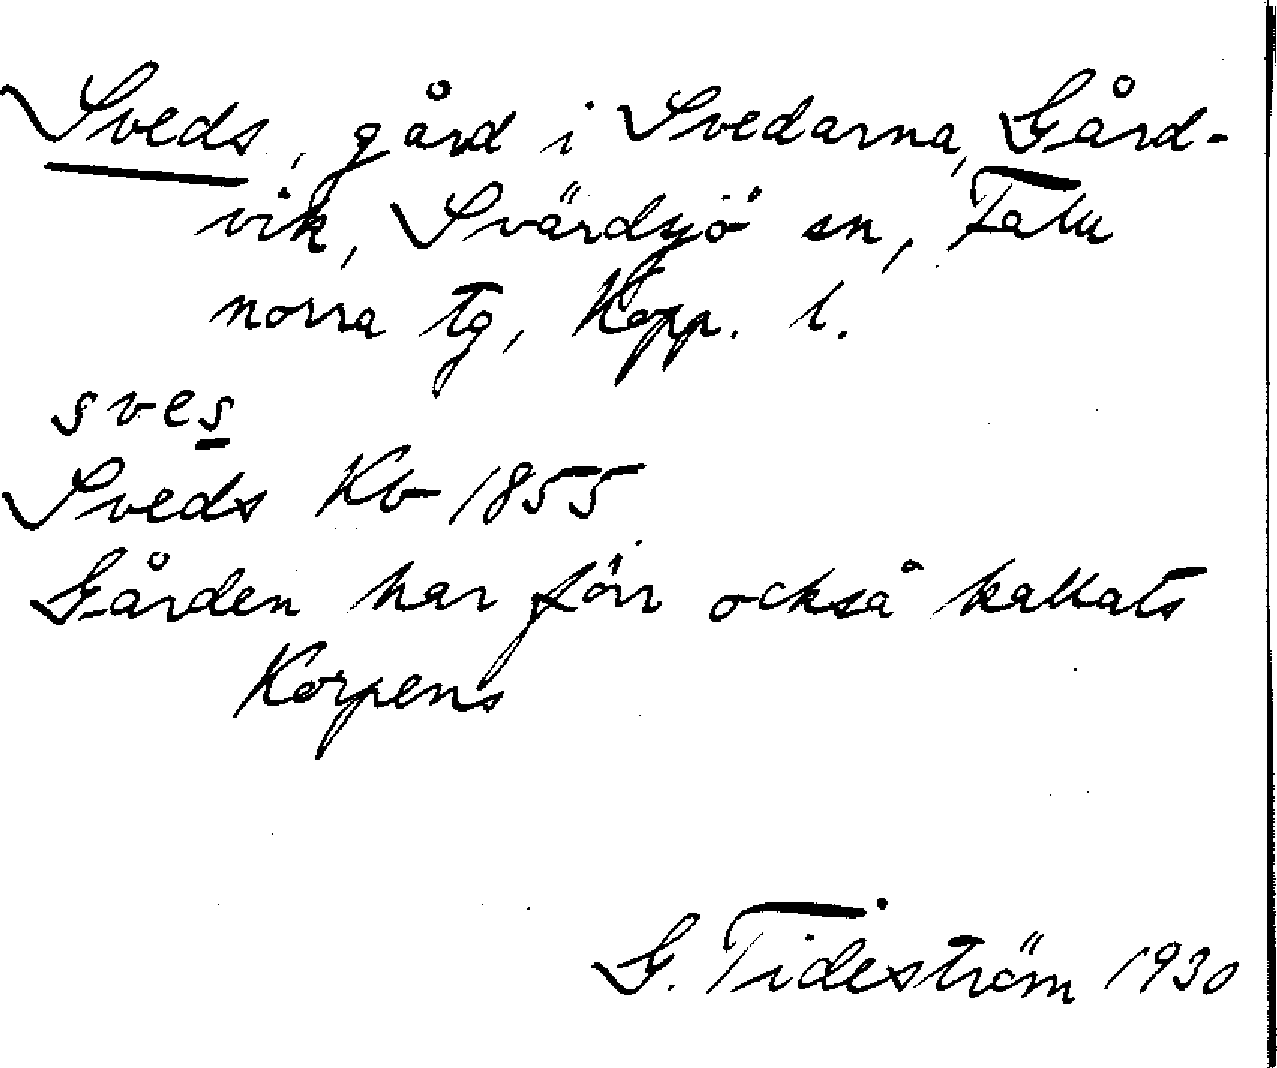 Sveds, gård i Svedarna, Gård-
vik, Svärdsjö sn, Falu
norra tg, Kopp. l.
sves
Sveds Kb 1855
Gården har förr också kallats
Korpens
G. Tideström 1930